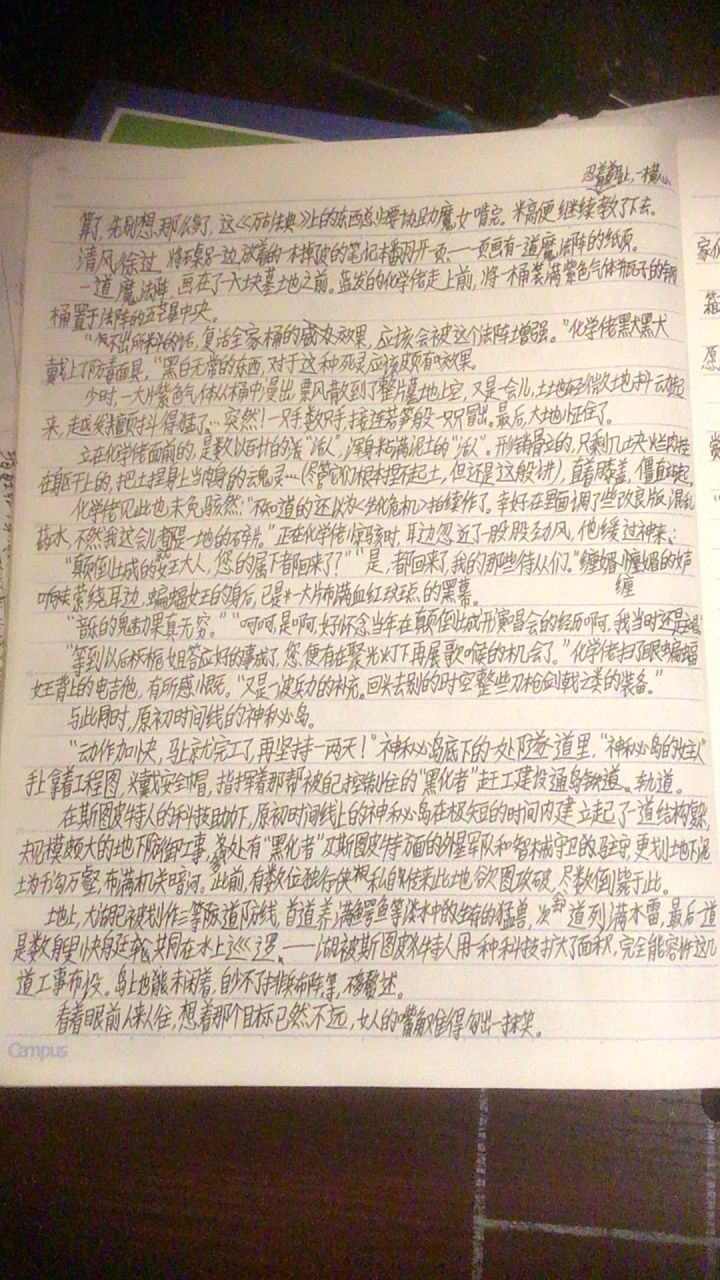 忍着羞耻上,一横心
算了,先别想那么多了,这《万咒法典》上的东西总归要协助魔女啃完。米高便继续教了下去。
清风徐过,将球另一边,放着的一本掉皮的笔记本翻开一页。——一页画有一道魔法阵的纸页。
一道魔法阵,画在了六块墓地之前。蓝发的化学佬走上前,将一桶装满紫色气体的钢
桶置于法阵的正中央。
“不出所料的话,复活全家桶的效果,应该会被这个法阵增强。”化学佬嘿嘿
戴上了防毒面具,“黑白无常的东西,对于这种死灵应该颇有效果。
少时,一大片紫色气体从桶中漫出,飘风散到了整片墓地上空,又是一会儿,土地轻微地抖动起
来,越发颤抖得猛了…突然!一只手,数只手,接连若笋般一只只冒出。最后,大地怔住了。
立在化学佬面前的,是数以百计的活“活人”,浑身粘满泥土的“活人”。形销骨立的,只剩几块烂肉挂
在躯干上的,把土捏身上当肉身的云魂灵…(尽管它们根本捏不起土,但还是这般讲),直着膝盖,僵直站起。
化学佬见此也未免骇然:“不知道的还以为《生化危机》拍续作了。幸好在里面调了些改良版混乱
药水,不然我这会儿都是一地的碎片。”正在化学佬惊骇时,耳边忽近了一股股劲风,他缓过神来:
“颠倒大城的女王大人,您的属下都回来了?”“是,都回来了,我的那些侍从们。”缠媚的女声
响萦绕耳边,蝙蝠女王的身后,已是一大片布满血红玫斑的黑幕。
缠
“音乐的鬼魅力果真无穷。”“呵呵,是啊,好怀念当年在颠倒大城开演唱会的经历啊,我当时还是主唱”
“等到以后栀栀姐答应好的事成了,您便有在聚光灯下再展歌喉的机会了。”化学佬扫了眼蝙蝠
女王背上的电吉他,有所感慨。“又是一波兵力的补充。回头去别的时空整些刀枪剑戟之类的装备。”
与此同时,原初时间线的神秘岛。
“动作加快,马上就完工了,再坚持一两天!”神秘岛底下的一处隧道里,“神秘岛的女主人”
手上拿着工程图,头戴安全帽,指挥着那帮被自己控制住的“黑化者”赶工建设通岛铁道、轨道。
在斯图皮特人的科技助力下,原初时间线上的神秘岛在极短的时间内建立起了一道结构复杂,
规模颇大的地下防御工事,各处有“黑化者”及斯图皮特方面的外星军队和智械守卫的驻守,更划地下泥
土为千沟万壑,布满机关暗河。此前,有数位独行侠想私自传来此地欲图攻破,尽数倒毙于此。
地上,大湖已被划作三等防道防线,首道养满鳄鱼等淡水中的生存的猛兽,次道列满水雷,最后一道
是数艘里快舟廷轮共同在水上巡逻。——湖被斯图皮特人用一种科技扩大了面积,完全能容许这几
道工事布设。岛上也能未闲着,自少不了排兵布阵等,不移赘述。
看着眼前人来人往,想着那个目标已然不远,女人的嘴角难得勾出一抹笑。
Campus